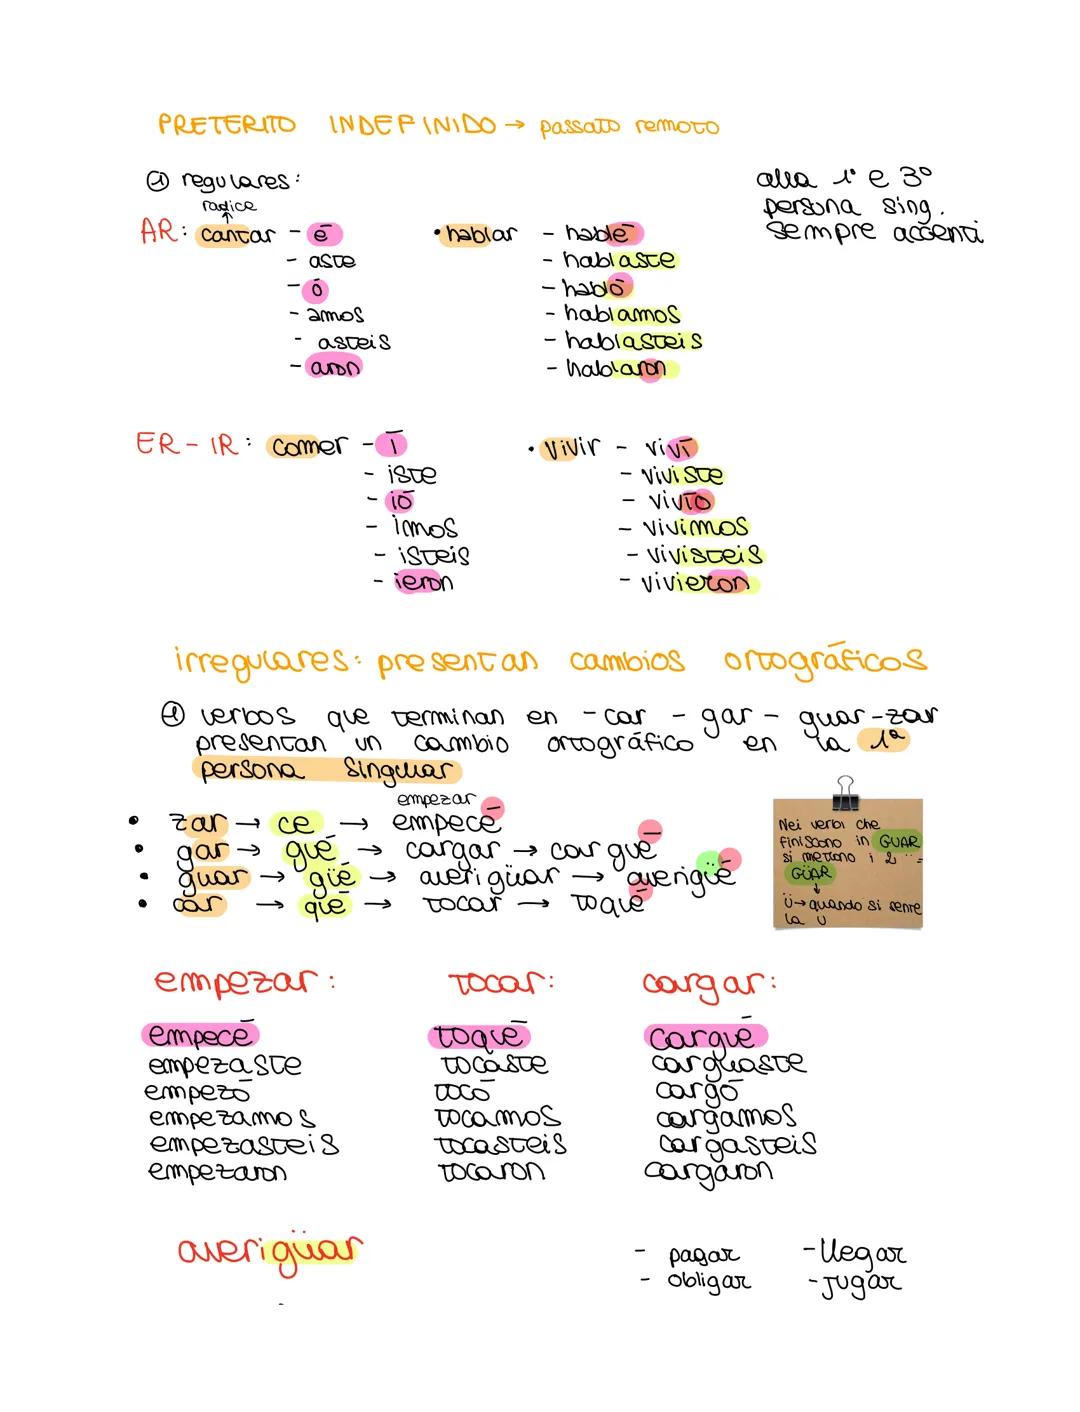 PRETERITO INDEFINIDO → passato remoto
① regulares:
radice
alla 1ª e 3ª
persona sing.
sempre accenti
AR: cantar - é
- aste
- ó
- amos
- asteis
- aron
• hablar - hablé
- hablaste
- habló
- hablamos
- hablasteis
- hablaron
ER - IR: comer - í
- iste
- ió
- imos
- isteis
- ieron
• vivir - viví
- viviste
- vivío
- vivimos
- vivisteis
- vivieron
irregulares: presentan cambios ortográficos
① verbos que terminan en - car - gar - guar - zar
presentan un cambio ortográfico en la 1ª
persona singular
empezar
• zar → ce → empecé
• gar → gué → cargar → cargué
• guar → güé → averigüar → averigüé
• car → qué → tocar → toqué
Nei verbi che
finiscono in GUAR
si mettono i 2 ¨ =
GÜAR
↓
ü → quando si sente
la u
empezar:
empecé
empezaste
empezó
empezamos
empezasteis
empezaron
tocar:
toqué
tocaste
tocó
tocamos
tocasteis
tocaron
cargar:
cargué
carguaste
cargó
cargamos
cargasteis
cargaron
averigüar
- pagar
- obligar
- llegar
- jugar